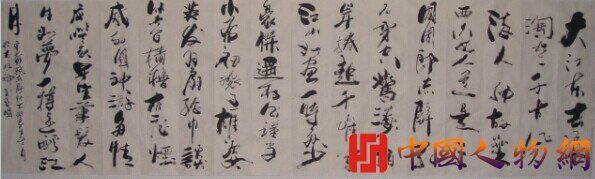 大江东去浪
淘尽千古风
流人物故垒
西边人道是
国周郎赤壁
石穿空惊涛
岸卷起千堆
江山如画一时多少
豪杰遥想公瑾当
小乔初嫁了雄姿
英发羽扇纶巾谈
笑间樯橹灰飞烟
故国神游多情
应笑我早生华发人
生如梦一樽还酹江
月
中國人物網